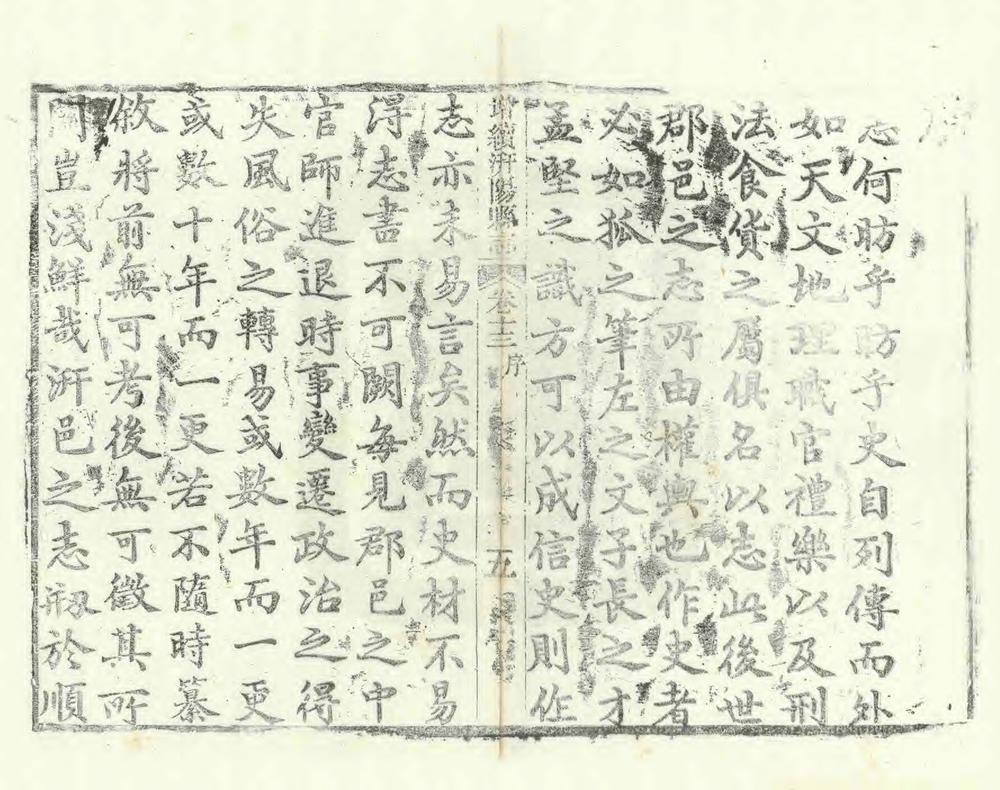 志何昉乎昉乎史自列傳而外
如天文地理職官禮樂以及刑
法食貨之屬俱名以志此後世
郡邑之志所由權輿也作史者
必如狐之筆左之文子長之才
孟堅之識方可以成信史則作
續汧陽縣志 卷十三 序 五
志亦未易言矣然而史材不易
得志書不可闕每見郡邑之中
官師進退時事變遷政治之得
失風俗之轉易或數年而一更
或數十年而一更若不隨時纂
敘將前無可考後無可徵其所
關豈淺鮮哉汧邑之志刱於順